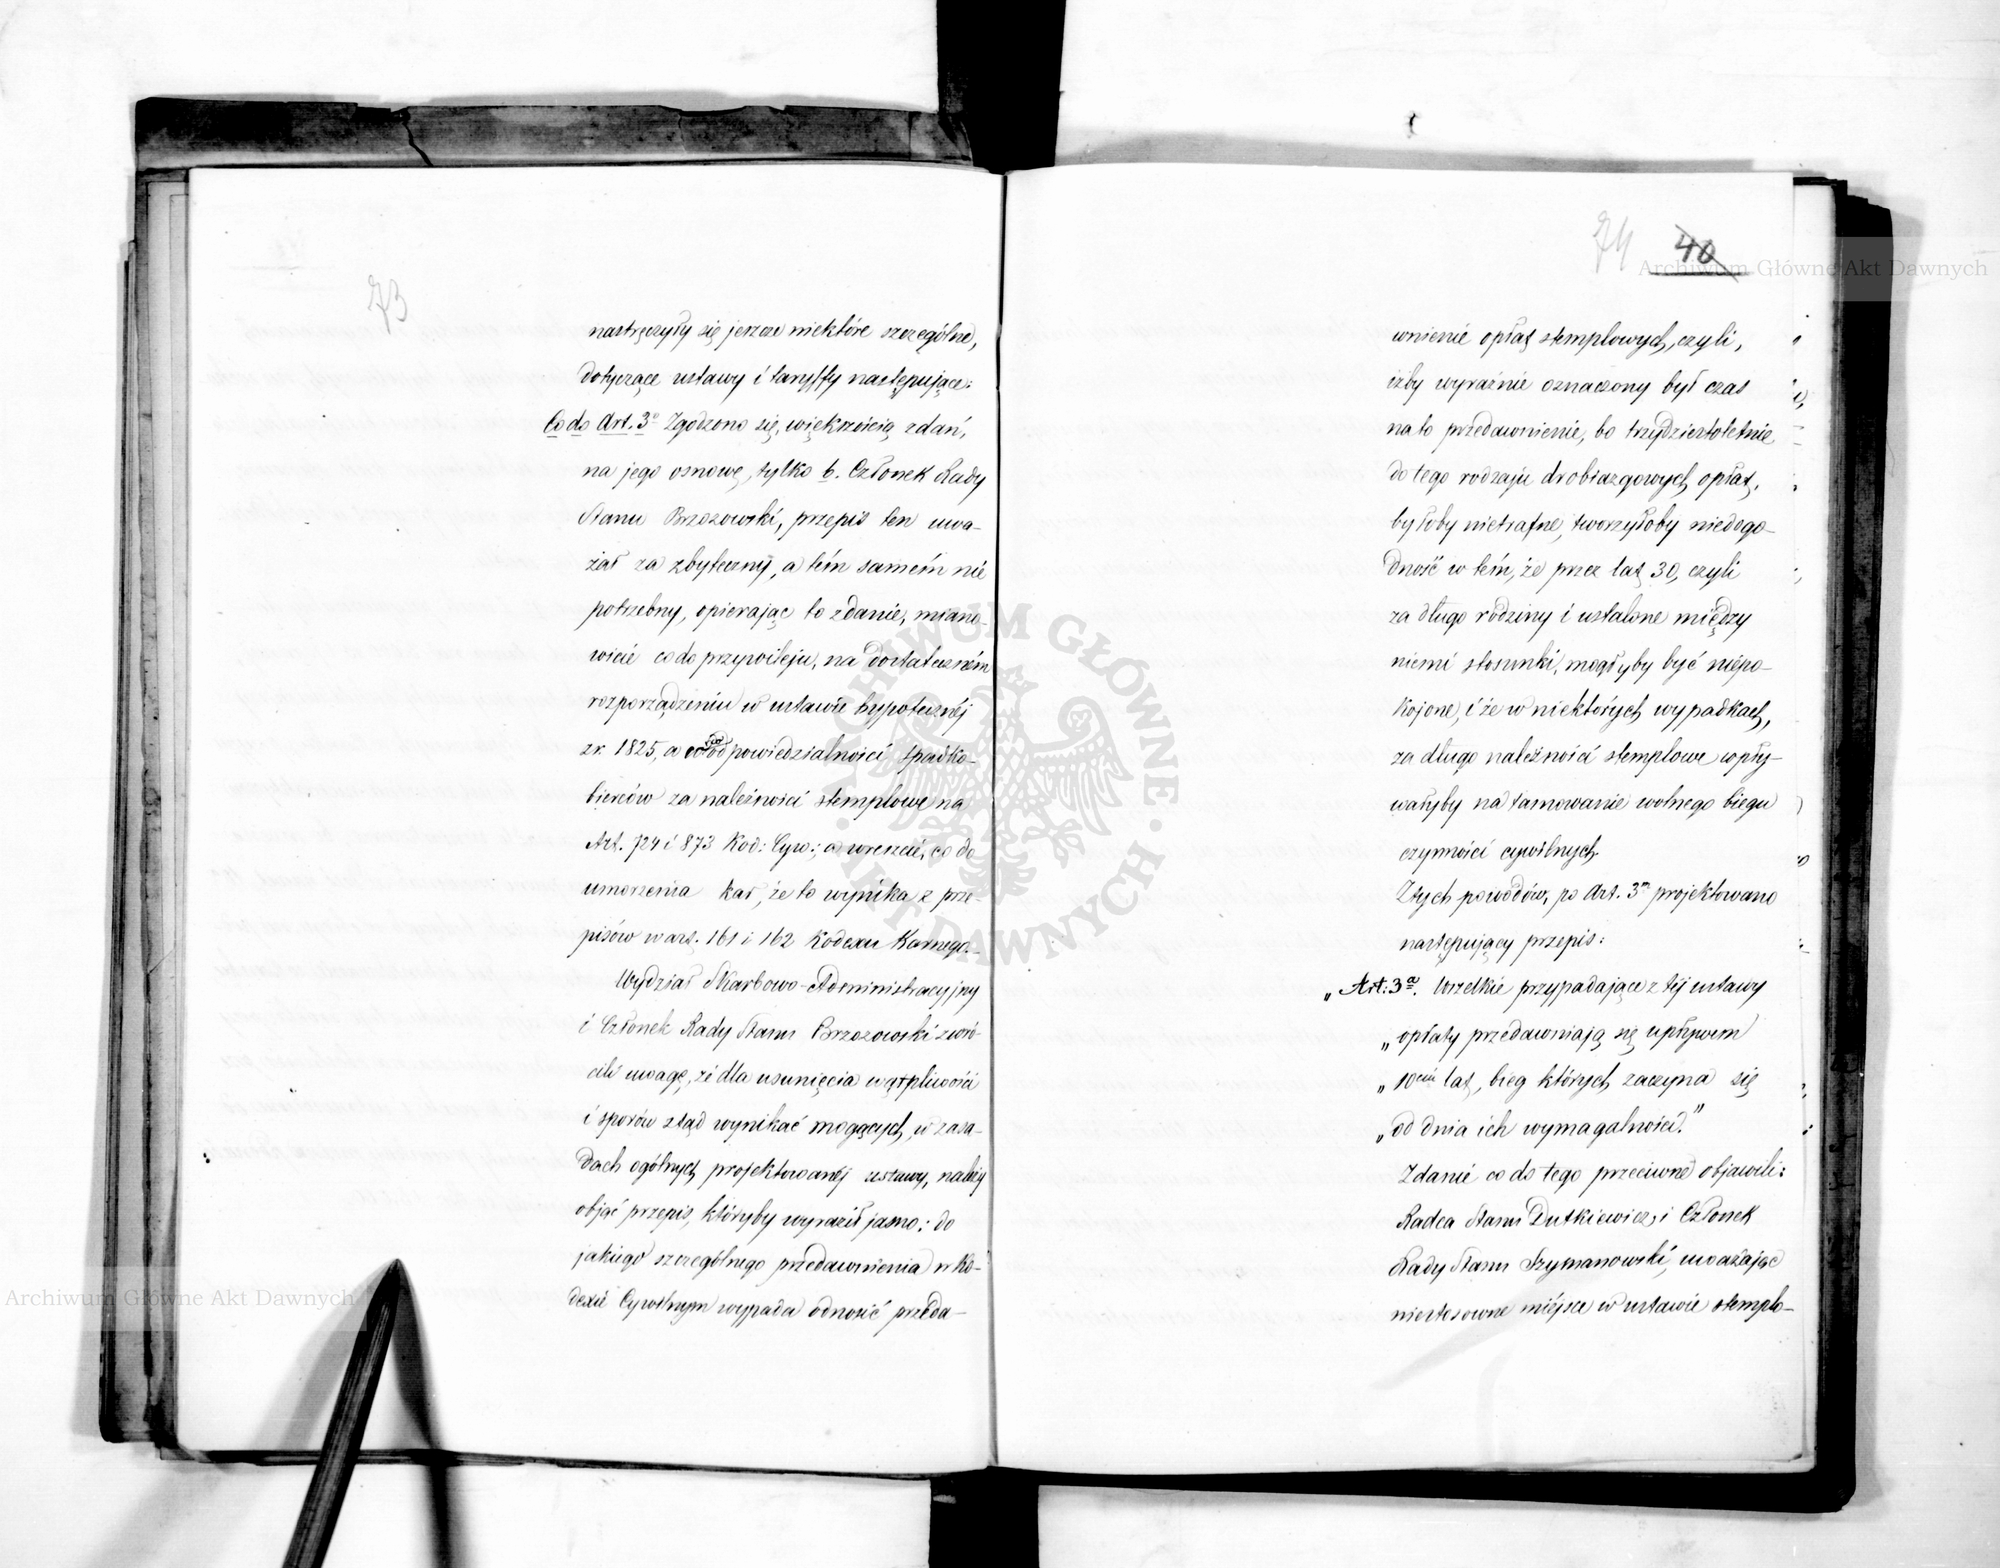 73
nastręczyły się jeszcze niektóre szczególne,
dotyczące ustawy i taryffy następujące:
Co do Art. 3º Zgodzono się, większością zdań,
na jego osnowę, tylko b. Członek Rady
Stanu Brzozowski, przepis ten uwa-
żał za zbyteczny, a tém samém nie
potrzebny, opierając to zdanie, miano-
wicie co do przywileju, na dostateczném
rozporządzeniu w ustawie hypotecznéj
z r. 1825, a co do odpowiedzialności spadko-
bierców za należności stemplowe na
Art. 724 i 873 Kod: Cyw:; a wreszcie, co do
umorzenia kar, że to wynika z prze-
pisów w art. 161 i 162 Kodexu Karnego.
Wydział Skarbowo-Administracyjny
i Członek Rady Stanu Brzozowski zwró-
cili uwagę, że dla usunięcia wątpliwości
i sporów ztąd wynikać mogących, w zasa-
dach ogólnych projektowanéj ustawy, należy
objąć przepis, któryby wyraził jasno: do
jakiego szczególnego przedawnienia w Ko-
dexie Cywilnym wypada odnosić przeda-
74 40
wnienie opłat stemplowych, czyli,
iżby wyraźnie oznaczony był czas
na to przedawnienie, bo trzydziestoletnie
do tego rodzaju drobiazgowych opłat,
byłoby nietrafne, tworzyłoby niedogo-
dność w tém, że przez lat 30, czyli
za długo rodziny i ustalone między
niemi stosunki, mogłyby być niepo-
kojone, i że w niektórych wypadkach,
za długo należności stemplowe wpły-
wałyby na tamowanie wolnego biegu
czynności cywilnych.
Z tych powodów, po Art. 3m projektowano
następujący przepis:
„Art: 3a. Wszelkie przypadające z téj ustawy
„opłaty przedawniają się upływem
„10ciu lat, bieg których zaczyna się
„od dnia ich wymagalności."
Zdanie co do tego przeciwne objawili:
Radca Stanu Dutkiewicz, i Członek
Rady Stanu Szymanowski, uważając
niestosowne miejsce w ustawie stemplo-
Archiwum Główne Akt Dawnych
Archiwum Główne Akt Dawnych
ARCHIWUM GŁÓWNE AKT DAWNYCH